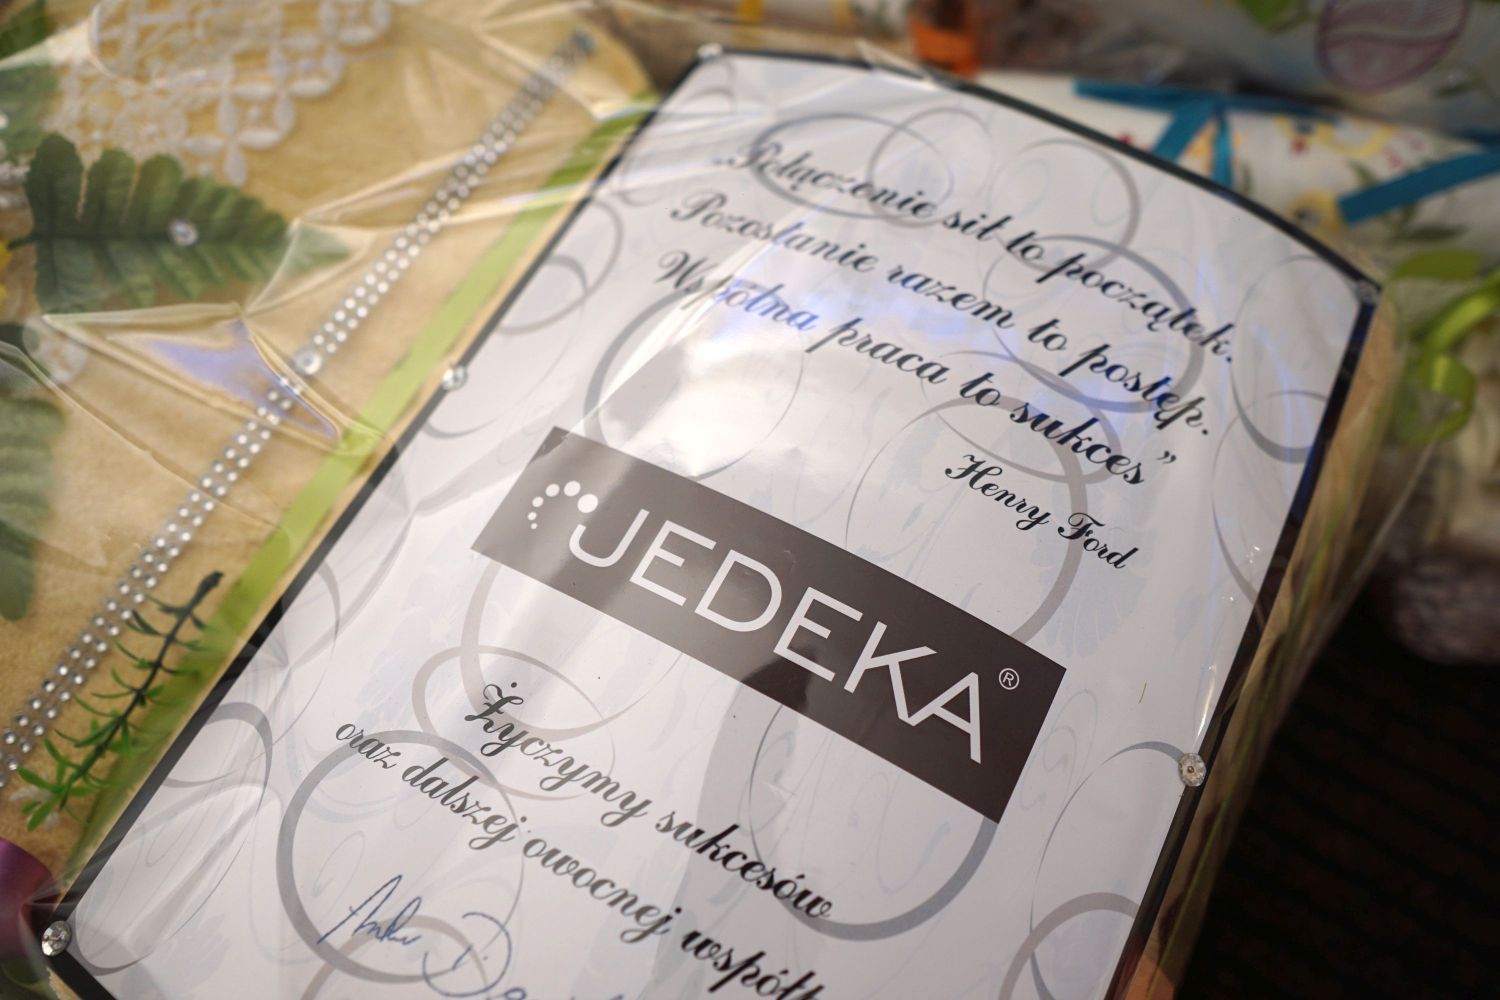 „Połączenie sił to początek.
Pozostanie razem to postęp.
Wspólna praca to sukces”
Henry Ford
JEDEKA®
Życzymy sukcesów
oraz dalszej owocnej